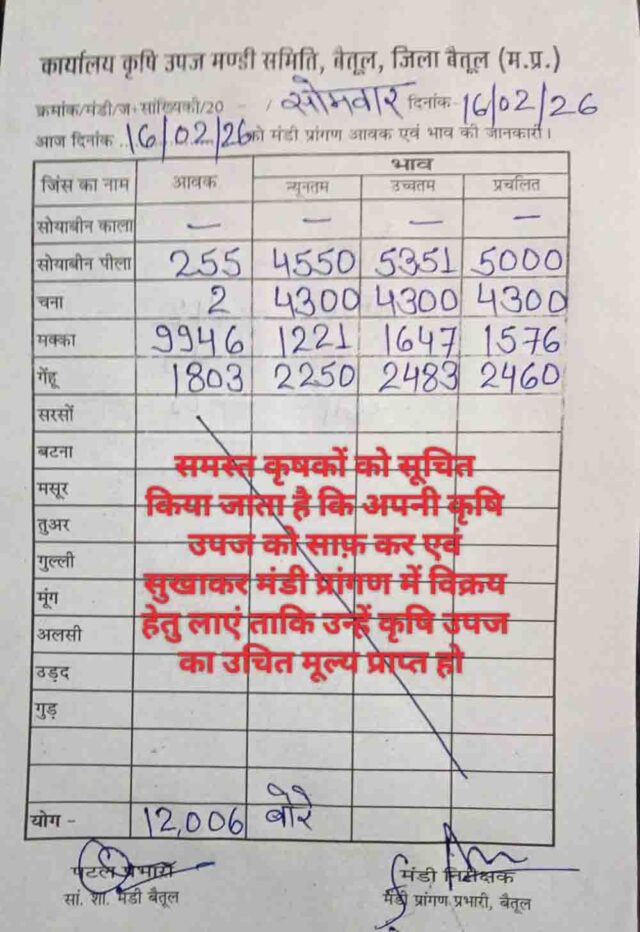 कार्यालय कृषि उपज मण्डी समिति, बैतूल, जिला बैतूल (म.प्र.)
क्रमांक/मंडी/ज. सांख्यिकी/20 - / सोमवार दिनांक- 16/02/26
आज दिनांक ..16/02/26को मंडी प्रांगण आवक एवं भाव की जानकारी।
जिंस का नाम आवक भाव
न्यूनतम उच्चतम प्रचलित
सोयाबीन काला — — — —
सोयाबीन पीला 255 4550 5351 5000
चना 2 4300 4300 4300
मक्का 9946 1221 1647 1576
गेंहू 1803 2250 2483 2460
सरसों
बटना
मसूर
तुअर
गुल्ली
मूंग
अलसी
उड़द
गुड़
समस्त कृषकों को सूचित
किया जाता है कि अपनी कृषि
उपज को साफ़ कर एवं
सुखाकर मंडी प्रांगण में विक्रय
हेतु लाएं ताकि उन्हें कृषि उपज
का उचित मूल्य प्राप्त हो
योग - 12,006 बोरे
प्रभारी
सां. शा. मंडी बैतूल
मंडी निरीक्षक
मंडी प्रांगण प्रभारी, बैतूल